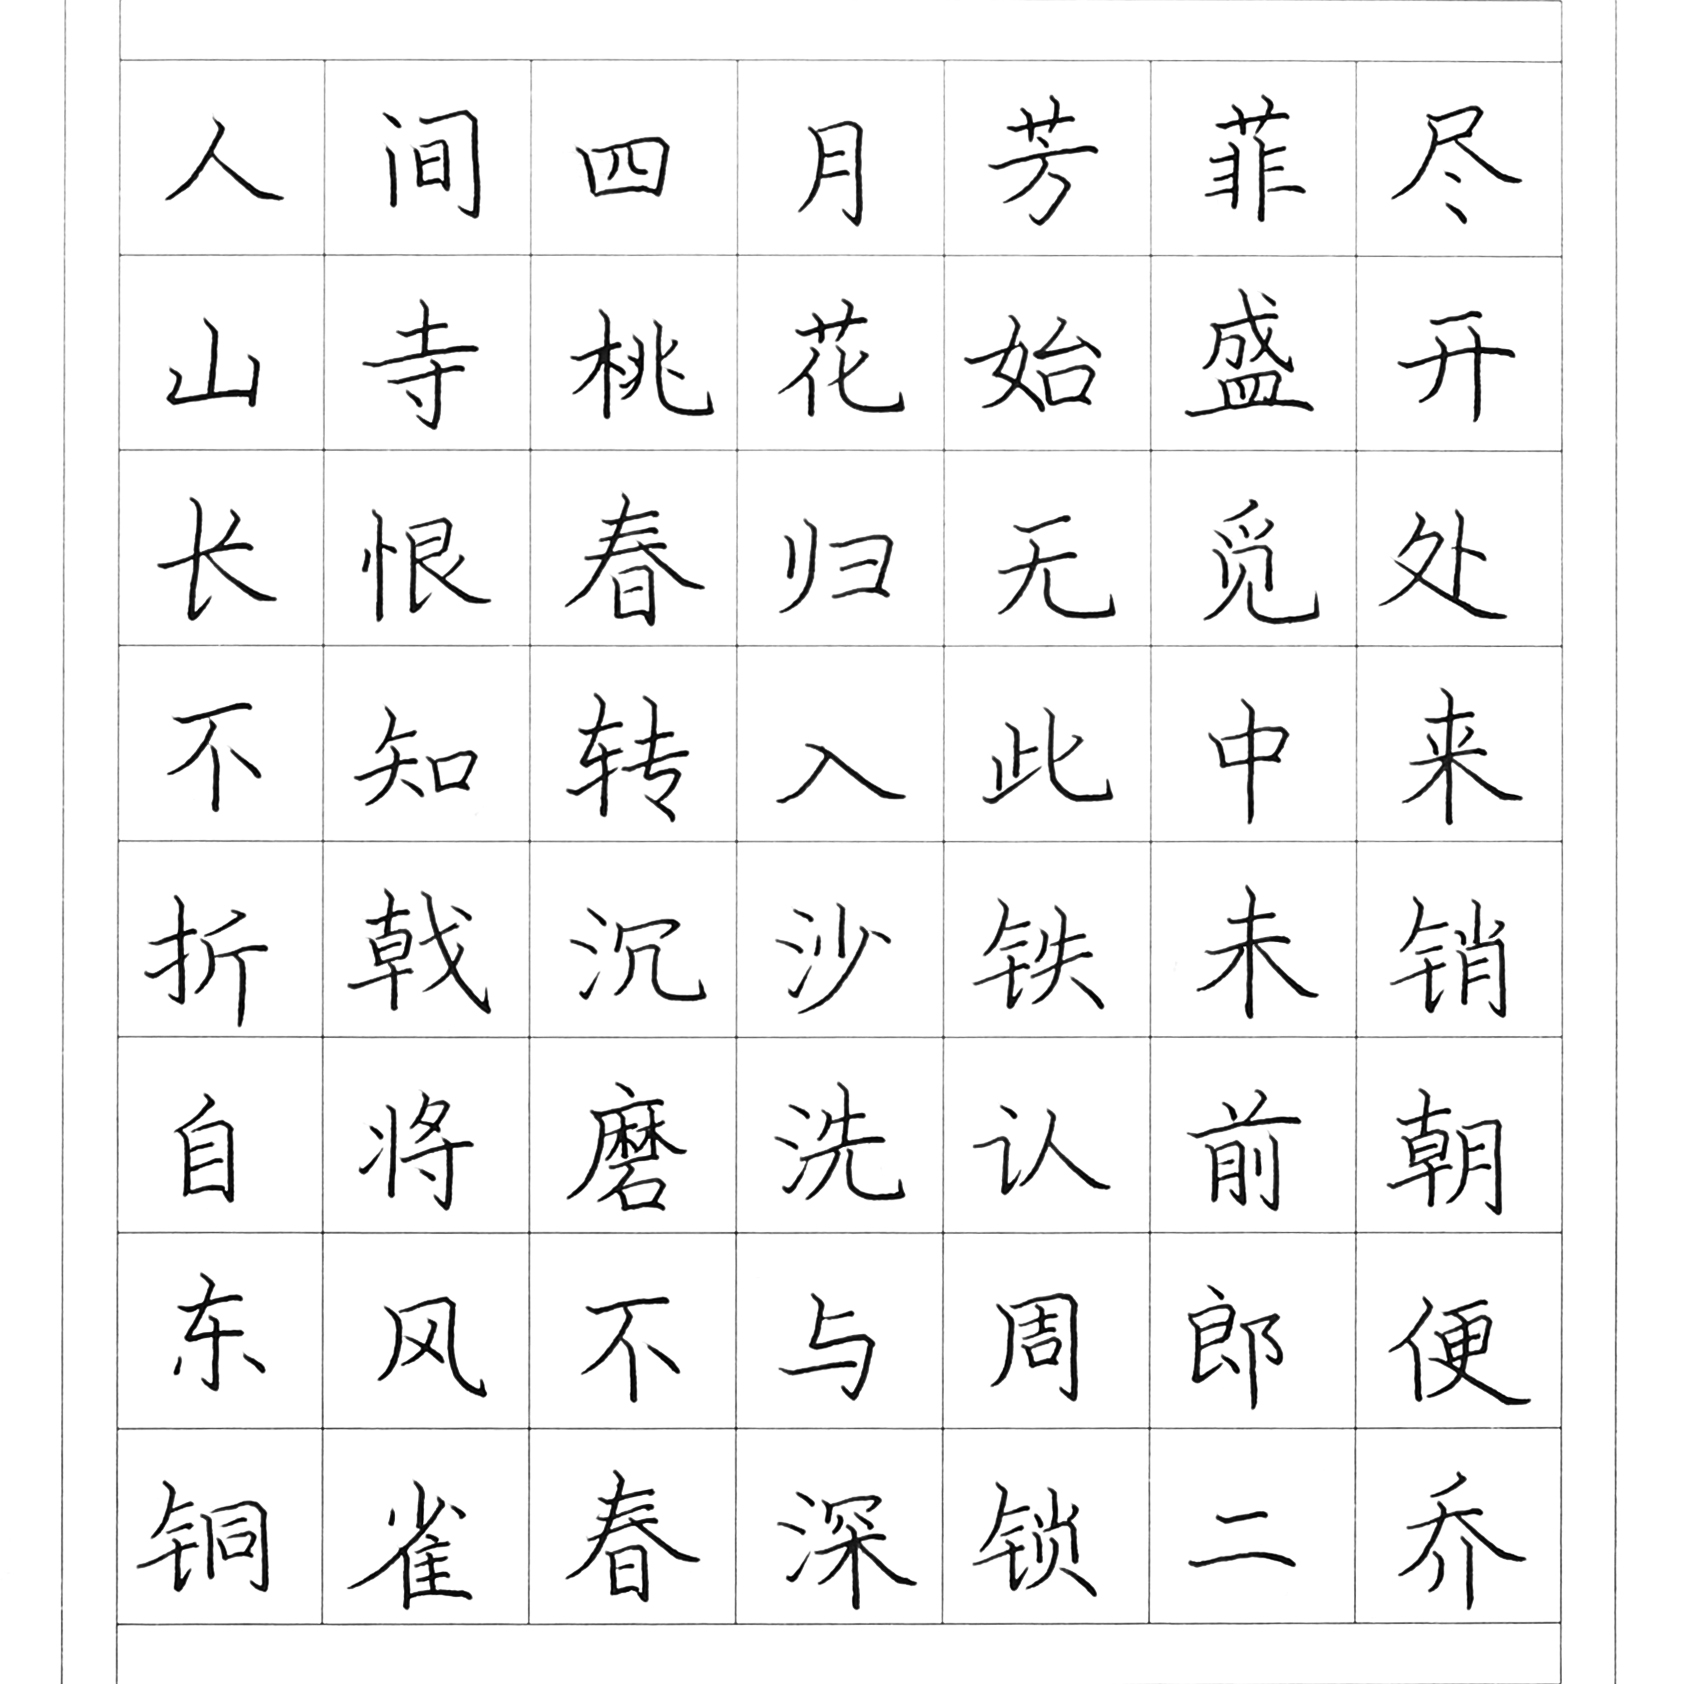 人间四月芳菲尽
山寺桃花始盛开
长恨春归无觅处
不知转入此中来
折戟沉沙铁未销
自将磨洗认前朝
东风不与周郎便
铜雀春深锁二乔